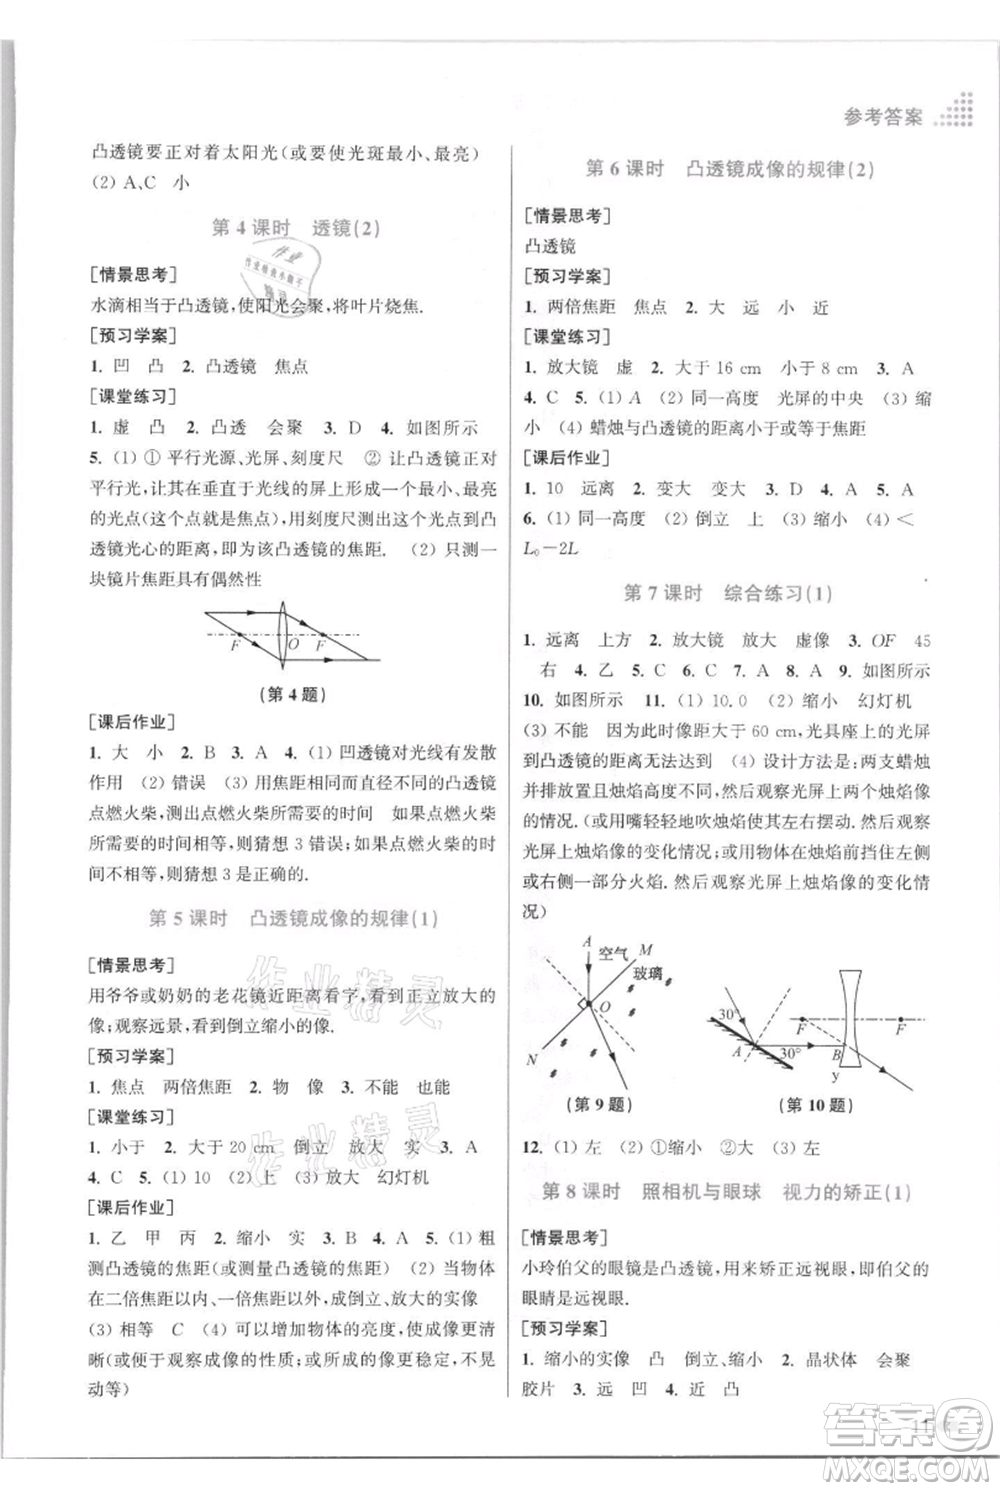 参考答案
凸透镜要正对着太阳光(或要使光斑最小、最亮)
(2) A、C 小
第 4 课时 透镜(2)
[情景思考]
水滴相当于凸透镜,使阳光会聚,将叶片烧焦.
[预习学案]
1. 凹 凸 2. 凸透镜 焦点
[课堂练习]
1. 虚 凸 2. 凸透 会聚 3. D 4. 如图所示
5. (1) ① 平行光源、光屏、刻度尺 ② 让凸透镜正对
平行光,使其在垂直于光线的屏上找到一个最小、最亮
的光点(这个点就是焦点),用刻度尺测出这个光点到凸
透镜光心的距离,即为该凸透镜的焦距. (2) 只测一
块镜片焦距具有偶然性
F O F
(第 4 题)
[课后作业]
1. 大 小 2. B 3. A 4. (1) 凹透镜对光线有发散
作用 (2) 错误 (3) 用焦距不同的凸透镜进行实验
点燃火柴,测出点燃火柴所需要的时间 如果点燃火柴
的时间相等,则猜想 3 错误;如果点燃火柴的时间不相
等,则猜想 3 是正确的.
第 5 课时 凸透镜成像的规律(1)
[情景思考]
用爷爷或奶奶的老花镜近距离看字,看到正立放大的
像;观察远景,看到倒立缩小的像.
[预习学案]
1. 焦点 两倍焦距 2. 物 像 3. 不能 也能
[课堂练习]
1. 小于 2. 大于 20 cm 倒立 放大 实 3. A
4. C 5. (1) 10 (2) 上 (3) 放大 幻灯机
[课后作业]
1. 乙 甲 丙 2. 缩小 实 3. B 4. A 5. (1) 粗
测凸透镜的焦距(或测量凸透镜的焦距) (2) 当物体
在二倍焦距以内、一倍焦距以外,成倒立、放大的实像
(3) 相等 C (4) 可以增加物体的亮度,使成像更清
晰(或便于观察成像的大小;或所成的像更稳定,不易晃
动等)
第 6 课时 凸透镜成像的规律(2)
[情景思考]
凸透镜
[预习学案]
1. 两倍焦距 焦点 2. 大 远 小 近
[课堂练习]
1. 放大镜 虚 2. 大于 16 cm 小于 8 cm 3. A
4. C 5. (1) A (2) 同一高度 光屏的中央 (3) 缩
小 (4) 蜡烛与凸透镜的距离小于或等于焦距
[课后作业]
1. 10 远离 2. 变大 变大 3. D 4. A 5. A
6. (1) 同一高度 (2) 倒立 上 (3) 缩小 (4) <
L₀−2L
第 7 课时 综合练习(1)
1. 远离 上方 2. 放大镜 放大 虚像 3. OF 45
右 4. 乙 5. C 6. C 7. A 8. A 9. 如图所示
10. 如图所示 11. (1) 10.0 (2) 缩小 幻灯机
(3) 不能 因为此时像距大于 60 cm,光具座上的光屏
到凸透镜的距离无法达到 (4) 设计方法:两支蜡烛
并排放置且使烛焰等高.然后观察光屏上两个烛焰像
的情况.(或用嘴轻轻地吹烛焰使其左右摆动.然后观察
光屏上烛焰像的变化情况;或用物体在烛焰前挡住左侧
或右侧一部分火焰.然后观察光屏上烛焰像的变化情
况)
A 空气 M 玻璃 O N
(第 9 题)
30° A 30° B F F y
(第 10 题)
12. (1) 左 (2) ①缩小 ②大 (3) 左
第 8 课时 照相机与眼球 视力的矫正(1)
[情景思考]
小玲伯父的眼镜是凸透镜,用来矫正远视眼,即伯父的
眼睛是远视眼.
[预习学案]
1. 缩小的实像 凸 倒立、缩小 2. 晶状体 会聚
胶片 3. 远 凹 4. 近 凸
答案圈
MXQE.COM
作业精灵
作业精灵